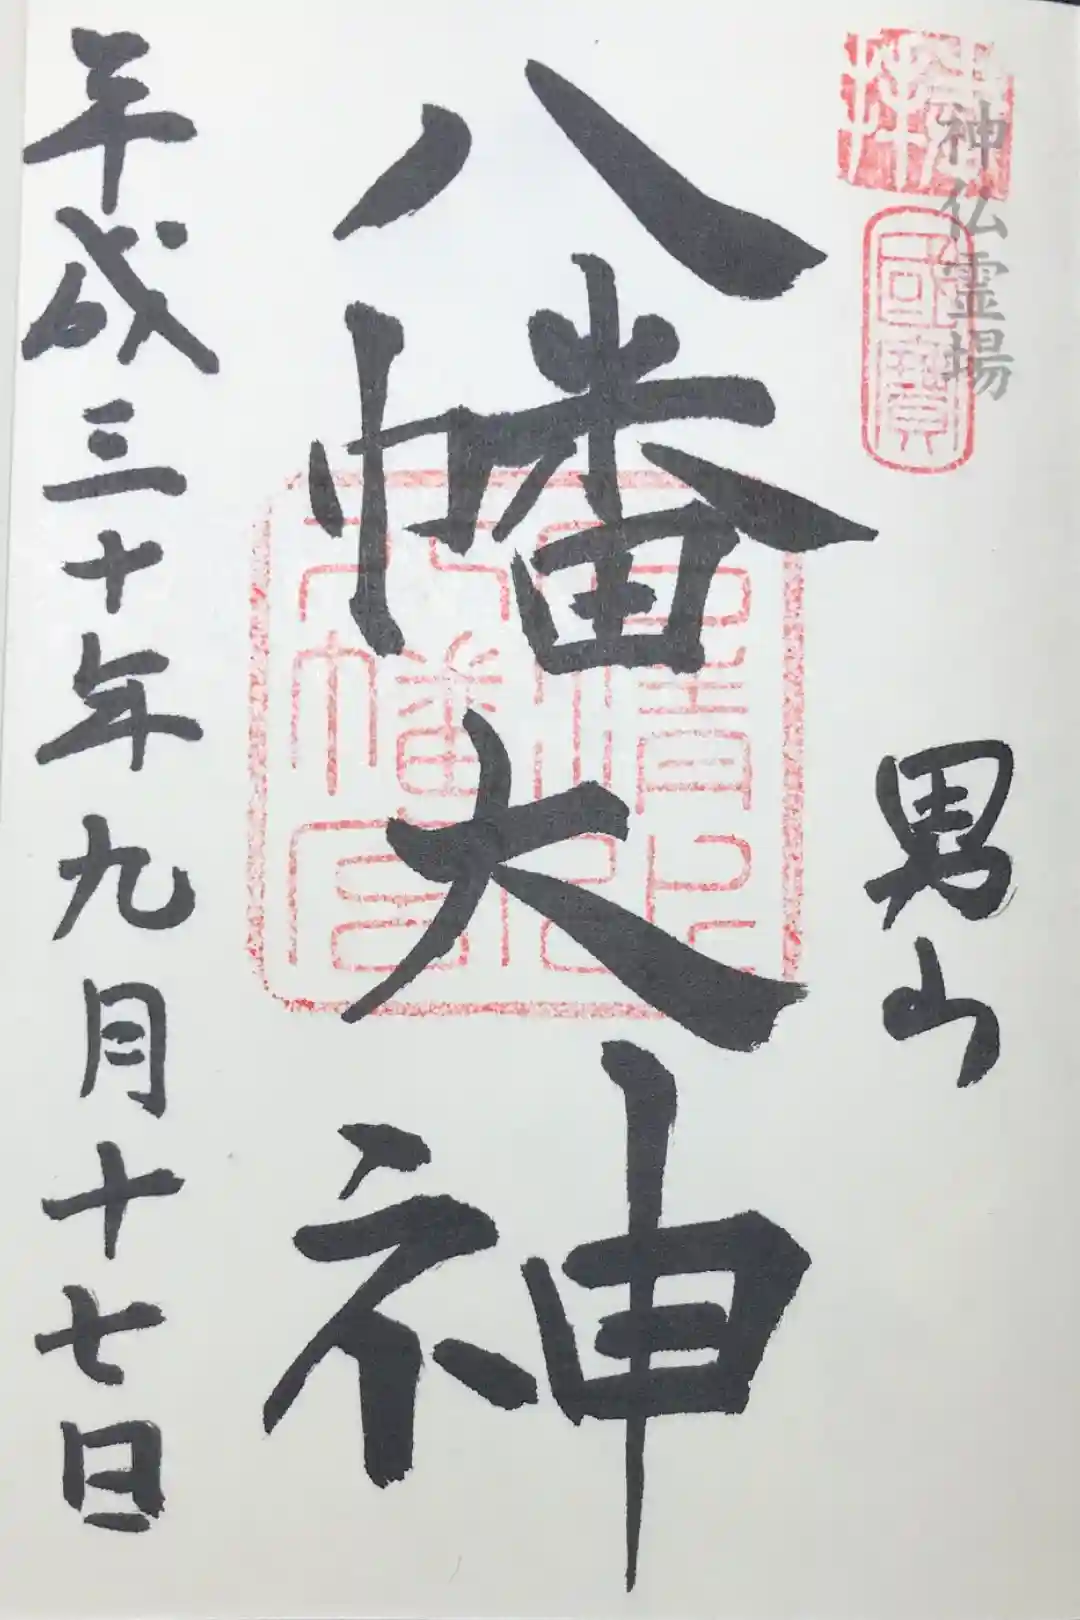 奉拝
神仏霊場
國寶
男山
八幡大神
石清水
八幡宮
平成三十年九月十七日